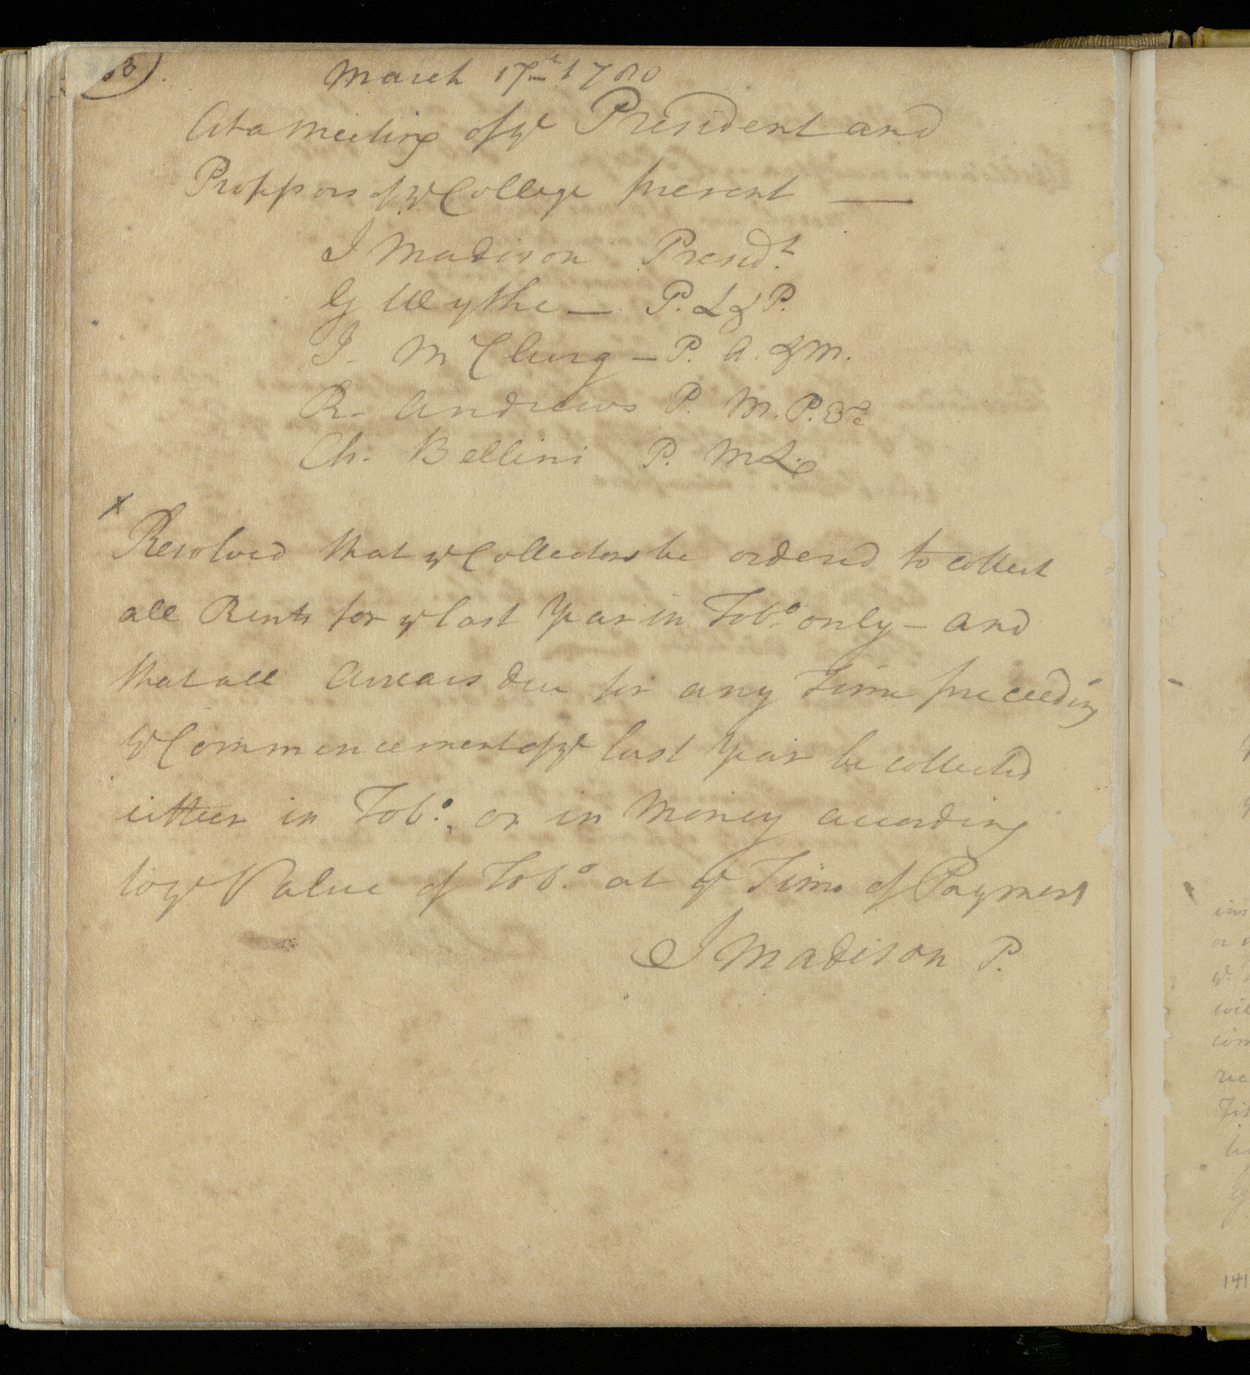 March 17th 1780
At a Meeting of ye President and
Professors of ye College present —
J Madison Presidt.
G Wythe — P. L & P.
J. McClurg — P. A. & M.
R. Andrews P. M. P. &c
Ch. Bellini P. M L.
x
Resolved that ye Collectors be ordered to collect
all Rents for ye last Year in Tobo. only – and
that all Arrears due for any Time preceeding
ye Commencement of ye last Year be collected
either in Tobo. or in Money according
to ye Value of Tobo. at ye Time of Payment
J Madison P.
141